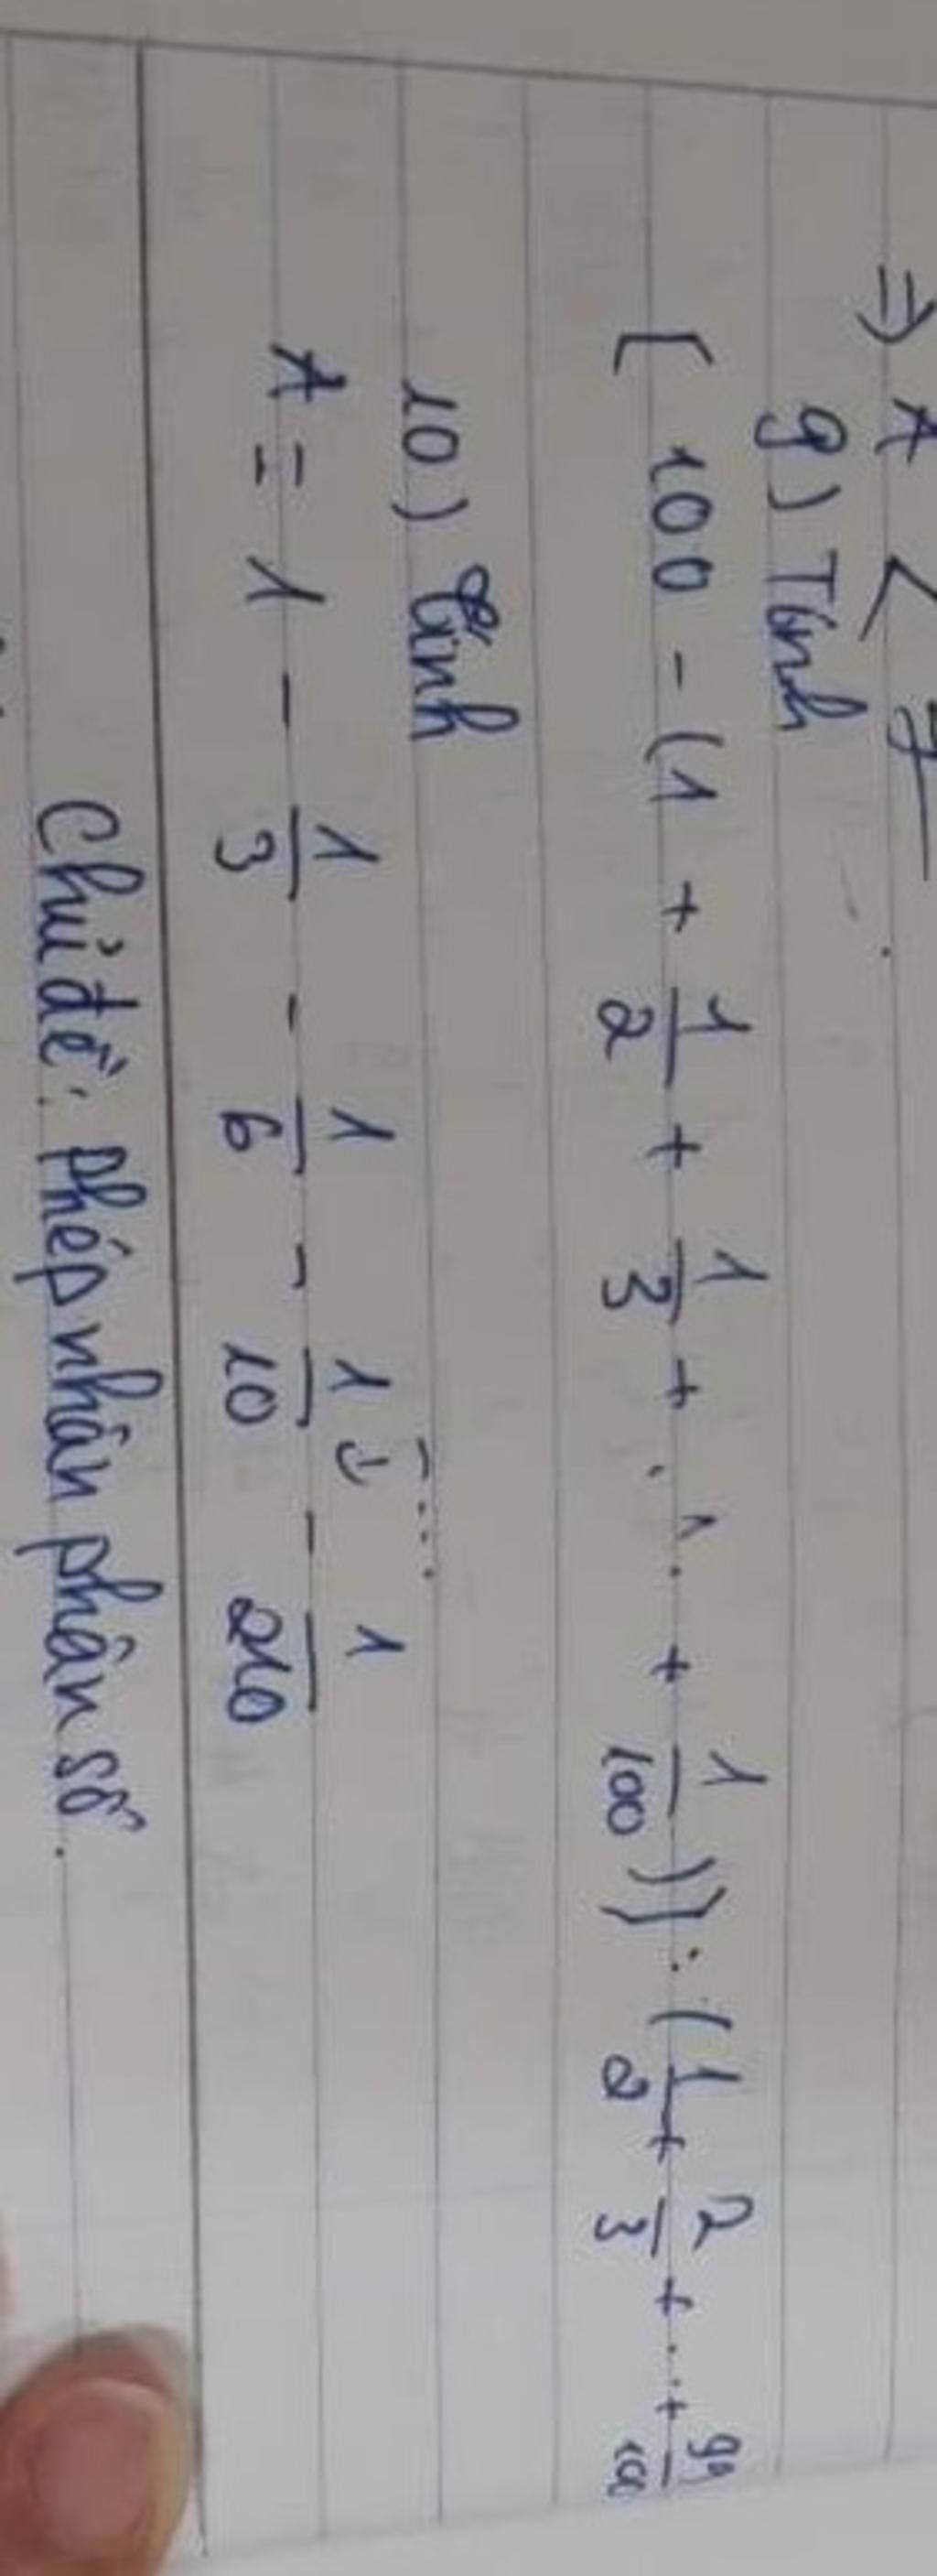 ⇒ A <
9) Tính
[ 100 - (1 + 1/2 + 1/3 + ... + 1/100)] : (1/2 + 2/3 + ... + 99/100
10) Tính
A = 1 - 1/3 - 1/6 - 1/10 - ... - 1/210
Chủ đề: phép nhân phân số.